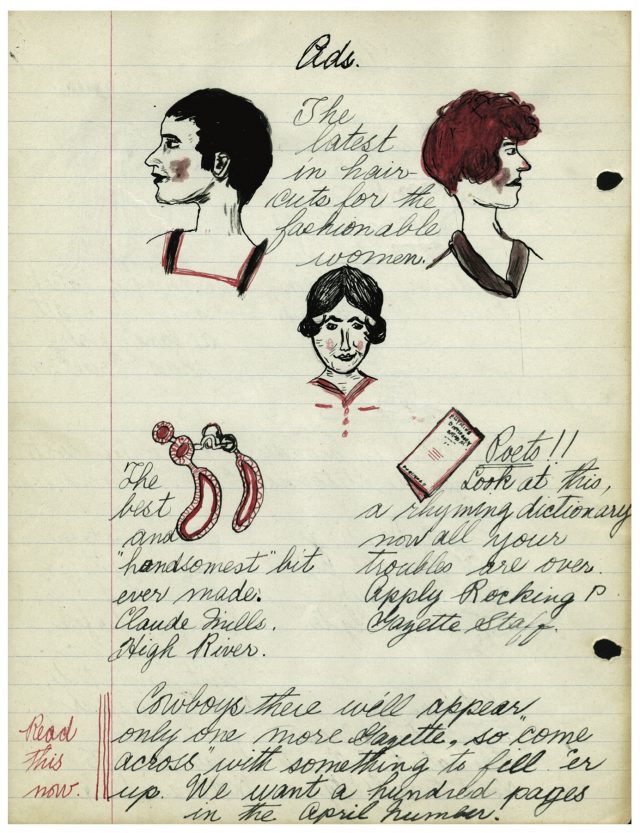 Ads.
The
latest
in hair-
cuts for the
fashionable
women.
The
best
and
"handsomest" bit
ever made.
Claude Mills.
High River.
Poets!!
Look at this,
a rhyming dictionary
now all your
troubles are over.
Apply Rocking P
Gazette Staff.
Read
this
now.
Cowboys there we'll appear
only one more Gazette, so "come
across" with something to fill 'er
up. We want a hundred pages
in the April number.